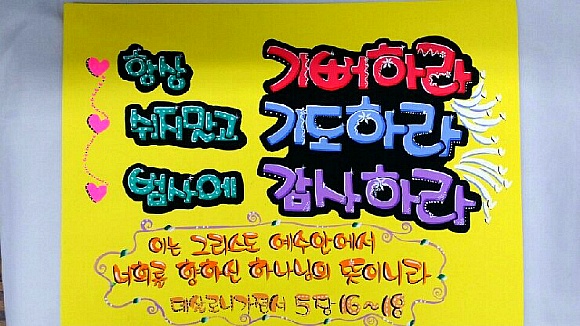 항상 기뻐하라
쉬지말고 기도하라
범사에 감사하라
이는 그리스도 예수안에서
너희를 향하신 하나님의 뜻이니라
데살로니가전서 5장 16~18